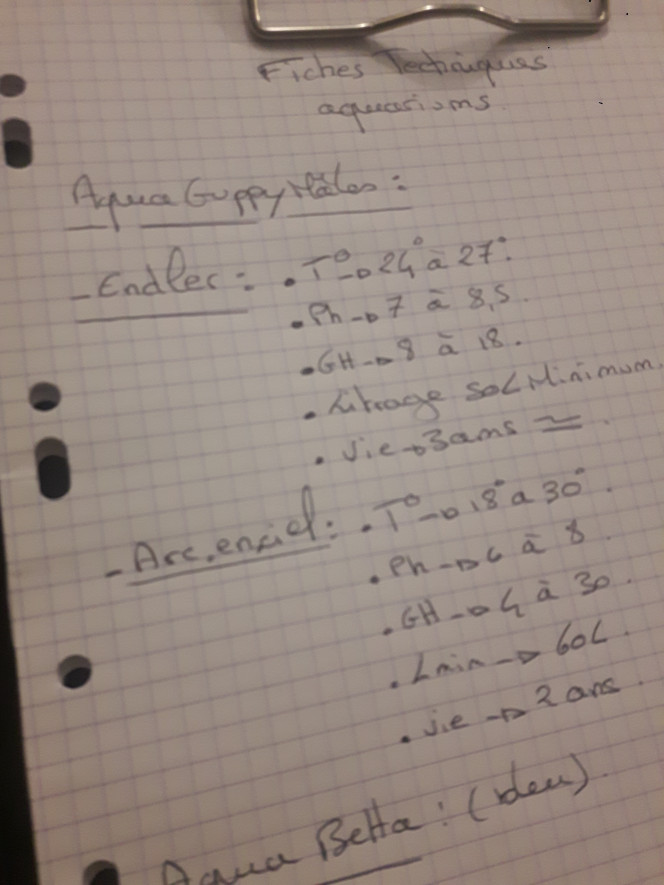 Fiches Techniques
aquariums.
Aqua Guppy Mâles :
- Endler : • T° → 24° à 27°.
• Ph → 7 à 8,5.
• GH → 8 à 18.
• Litrage 50L Minimum.
• Vie → 3 ans ≃.
- Arc.enciel : • T° → 18° a 30°.
• Ph → 6 à 8.
• GH → 4 à 30.
• Lmin → 60L.
• Vie → 2 ans.
Aqua Betta : (bleu).